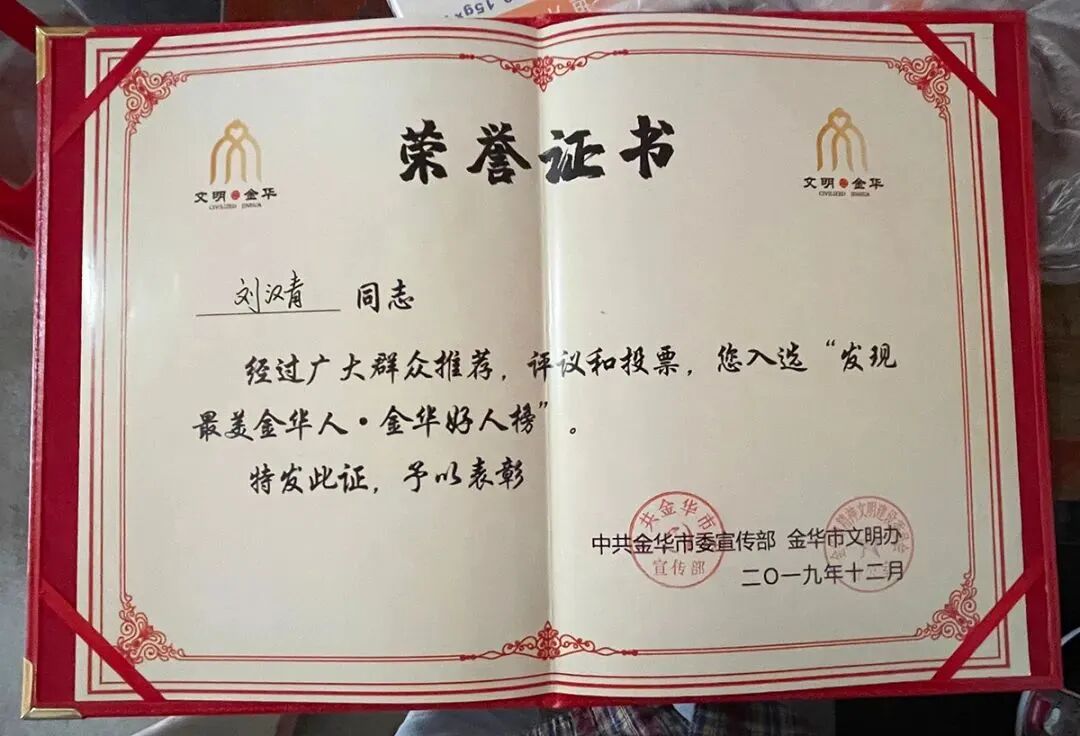 0.15g×
荣誉证书
文明 金华
CIVILIZED JINHUA
文明 金华
CIVILIZED JINHUA
刘汉青 同志
经过广大群众推荐，评议和投票，您入选“发现
最美金华人·金华好人榜”。
特发此证，予以表彰
中共金华市委宣传部 金华市文明办
二〇一九年十二月
共金华市
宣传部
精神文明建设